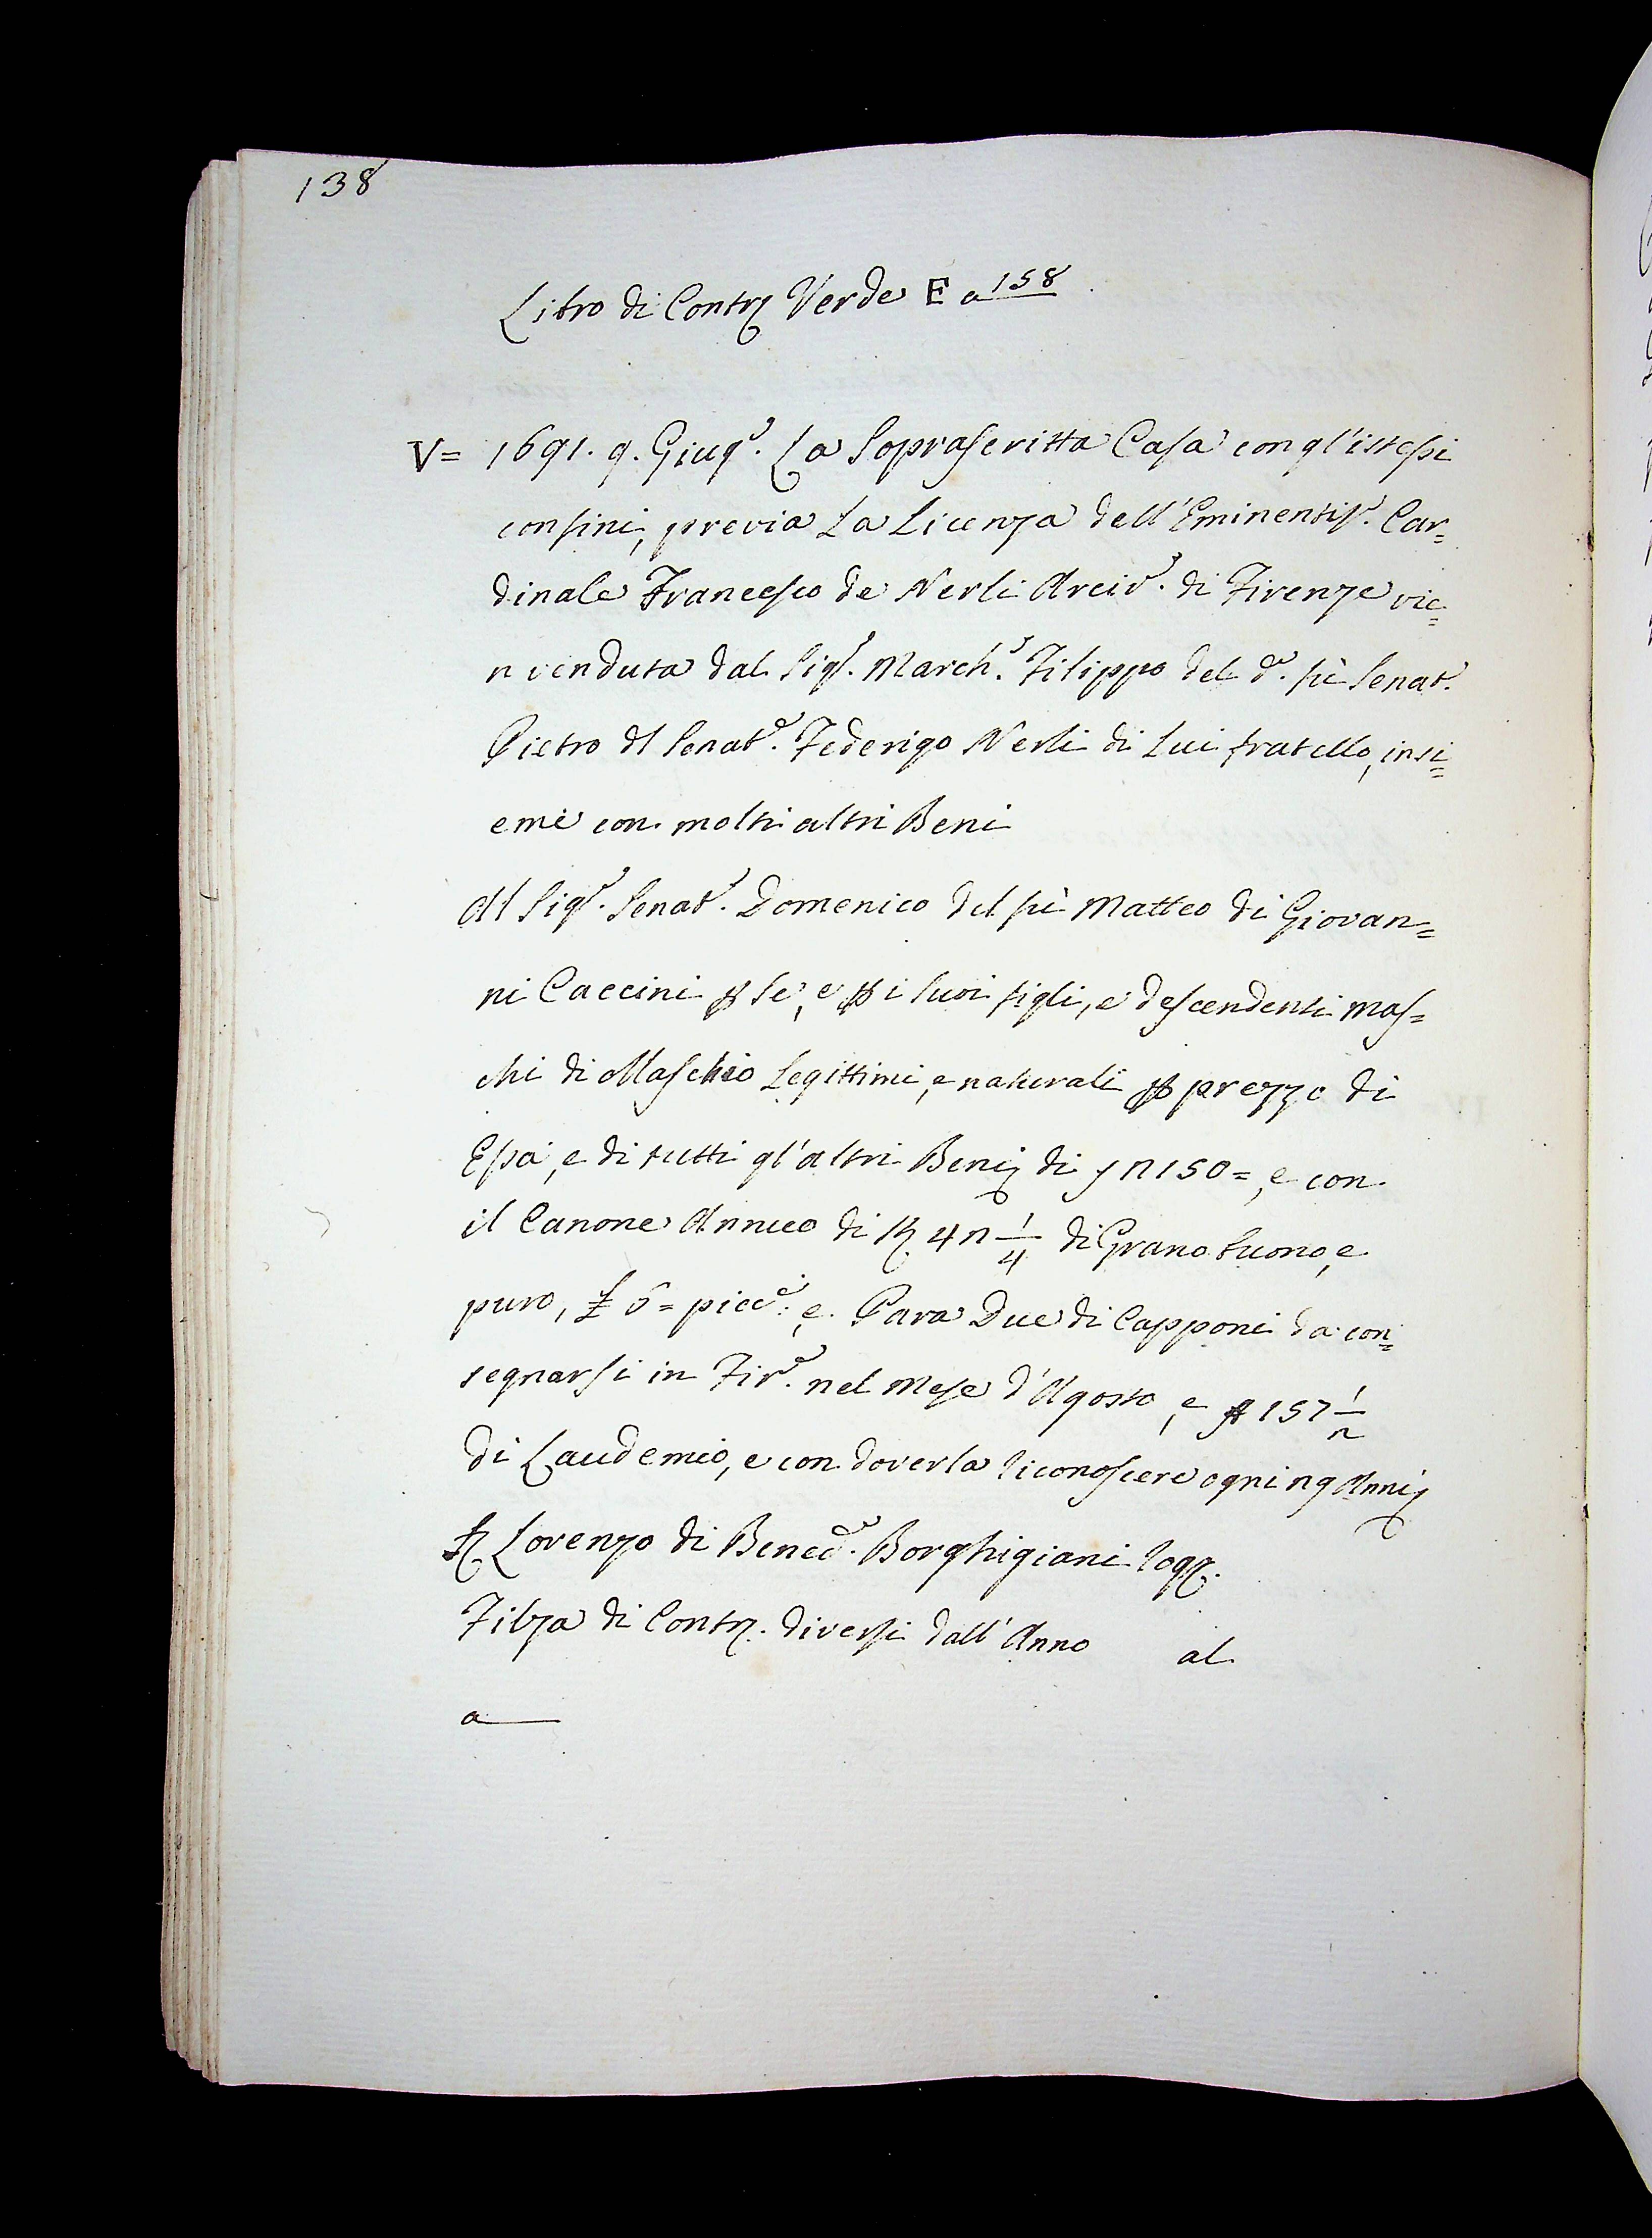 138
Libro di Contr. Verde E a 158
V= 1691. 9. Giug.o La Soprascritta Casa con gl'istessi
confini, previa La Licenza dell'Eminentiss.o Car=
dinale Francesco de Nerli Arciv.o di Firenze vie=
n venduta dal Sig.r March.e Filippo del d.o fù Senat.e
Pietro dl Senat.e Federigo Nerli di Lui fratello, insi=
eme con molti altri Beni
Al Sig.r Senat.e Domenico del fù Matteo di Giovan=
ni Caccini p se, e p i suoi figli, e descendenti mas=
chi di Maschio Legittimi, e naturali p prezzo di
Essa, e di tutti gl'altri Beni di 2150=, e con
il Canone Annuo di 42 1/4 di Grano buono, e
puro, £ 6= picc.e e Para Due di Capponi da con=
segnarsi in Fir.e nel Mese d'Agosto, e 157 1/2
di Laudemio, e con doverla riconoscere ogni 29 Anni
Lorenzo di Bened.o Borghigiani rog.
Filza di Contr. diversi dall'Anno al
a